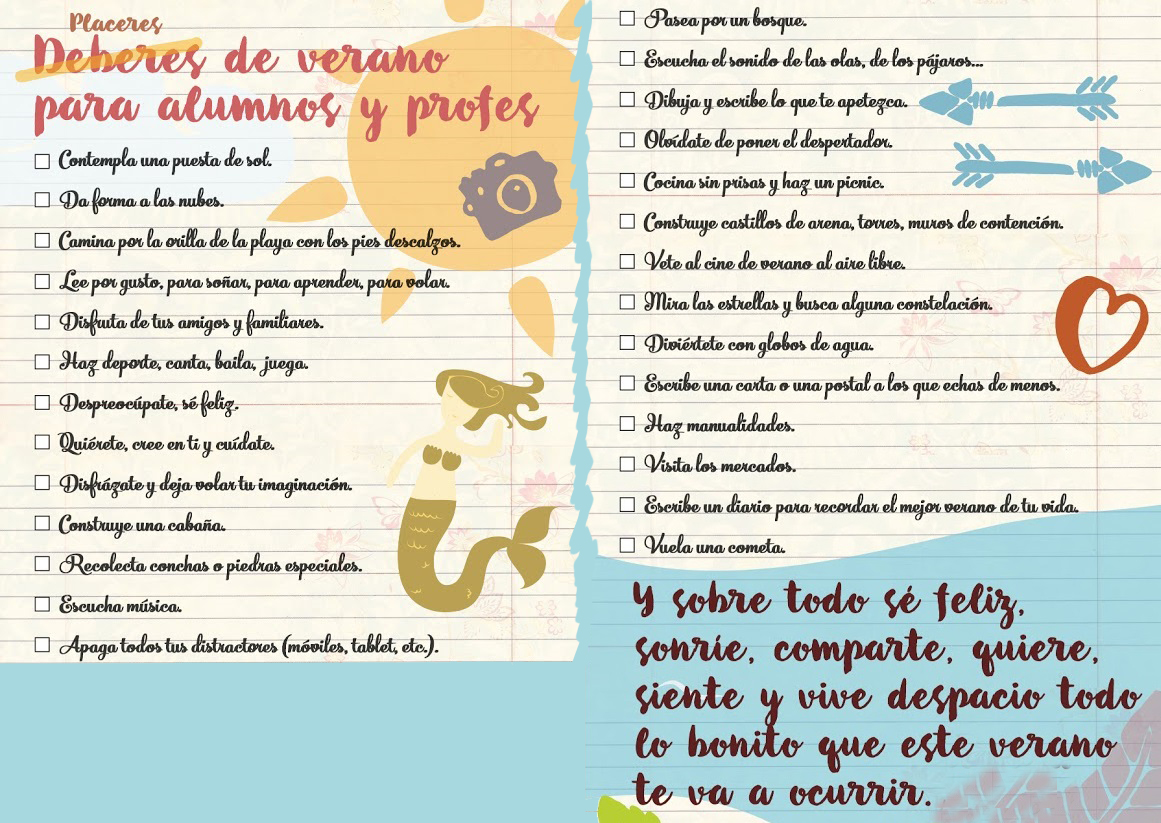 Placeres
Deberes de verano
para alumnos y profes
Contempla una puesta de sol.
Da forma a las nubes.
Camina por la orilla de la playa con los pies descalzos.
Lee por gusto, para soñar, para aprender, para volar.
Disfruta de tus amigos y familiares.
Haz deporte, canta, baila, juega.
Despreocúpate, sé feliz.
Quiérete, cree en ti y cuídate.
Disfrázate y deja volar tu imaginación.
Construye una cabaña.
Recolecta conchas o piedras especiales.
Escucha música.
Apaga todos tus distractores (móviles, tablet, etc.).
Pasea por un bosque.
Escucha el sonido de las olas, de los pájaros...
Dibuja y escribe lo que te apetezca.
Olvídate de poner el despertador.
Cocina sin prisas y haz un picnic.
Construye castillos de arena, torres, muros de contención.
Vete al cine de verano al aire libre.
Mira las estrellas y busca alguna constelación.
Diviértete con globos de agua.
Escribe una carta o una postal a los que echas de menos.
Haz manualidades.
Visita los mercados.
Escribe un diario para recordar el mejor verano de tu vida.
Vuela una cometa.
Y sobre todo sé feliz,
sonríe, comparte, quiere,
siente y vive despacio todo
lo bonito que este verano
te va a ocurrir.